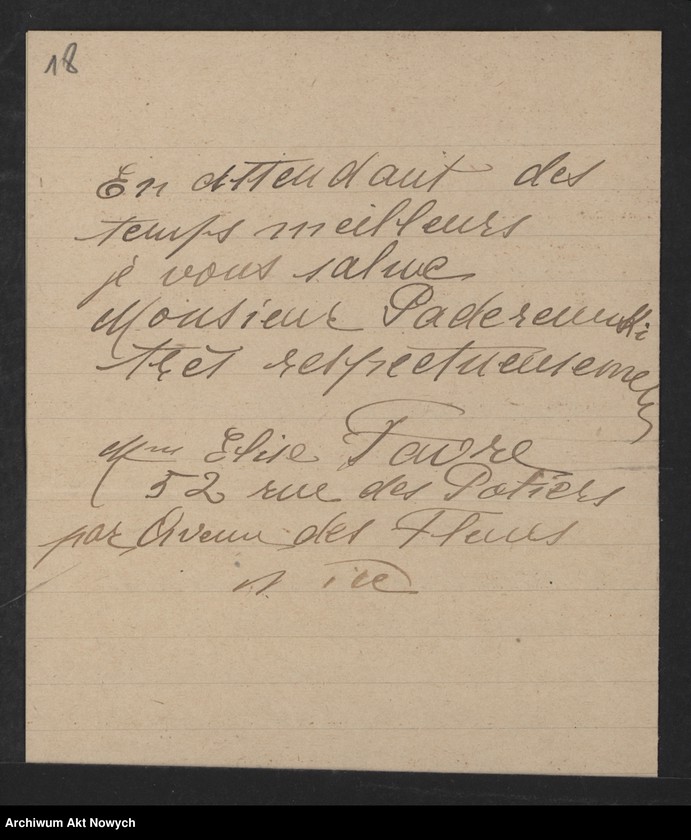 18
En attendant des
temps meilleurs
je vous salue
Monsieur Paderewski
très respectueusement
Mme Elise Favre
52 rue des Potiers
par Avenue des Fleurs
Nice
Archiwum Akt Nowych